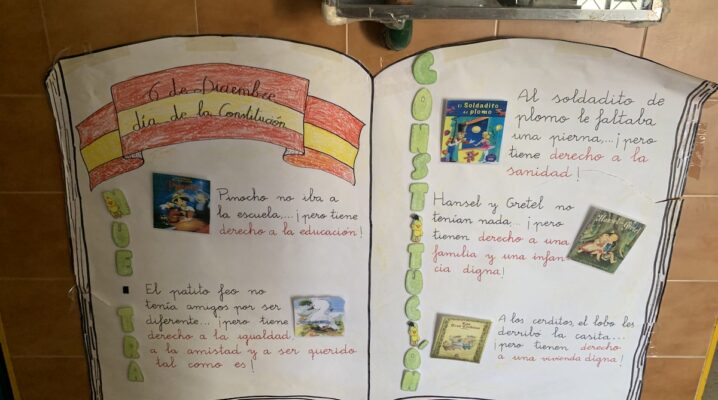 6 de Diciembre
día de la Constitución
NUE TRA
Pinocho no iba a
la escuela... ¡pero tiene
derecho a la educación!
El patito feo no
tenía amigos por ser
diferente... ¡pero tiene
derecho a la igualdad
a la amistad y a ser querido
tal como es!
CONSTITUCIÓN
El Soldadito
de plomo
Al soldadito de
plomo le faltaba
una pierna... ¡pero
tiene derecho a la
sanidad!
Hansel y Gretel no
tenían nada... ¡pero
tienen derecho a una
familia y una infan
cia digna!
A los cerditos, el lobo les
derribó la casita...
¡pero tienen derecho
a una vivienda digna!